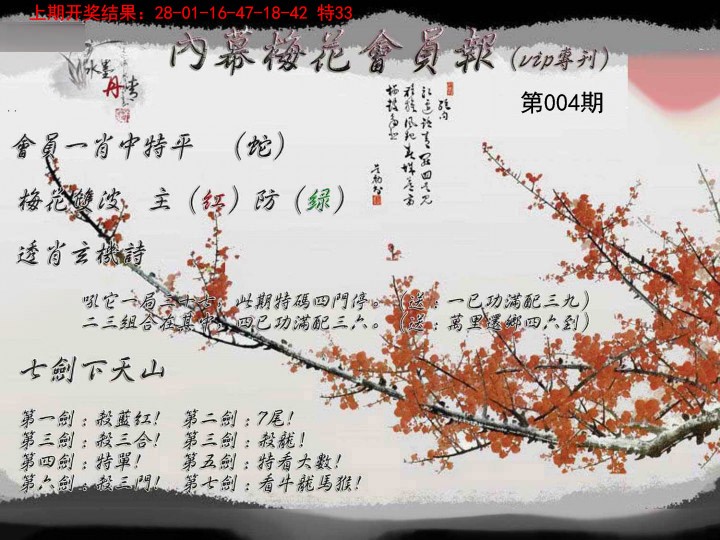 上期开奖结果：28-01-16-47-18-42 特33
內幕梅花會員報（vip專刊）
第004期
會員一肖中特平 （蛇）
梅花雙波 主（红）防（绿）
透肖玄機詩
吼它一局三十七，此期特碼四門停。（送：一已功滿配三九）
二三組合在其中，四已功滿配三六。（送：萬里還鄉四六到）
七劍下天山
第一劍：殺藍紅！ 第二劍：7尾！
第三劍：殺三合！ 第三劍：殺龍！
第四劍：特單！ 第五劍：特看大數！
第六劍：殺三門！ 第七劍：看牛龍馬猴！